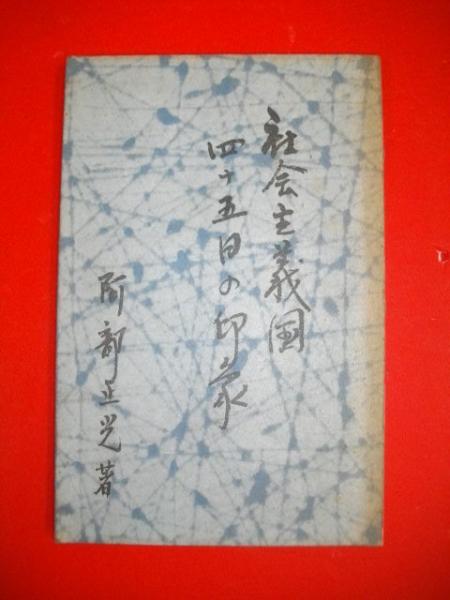 社会主義国
四十五日の印象
阿部正光著